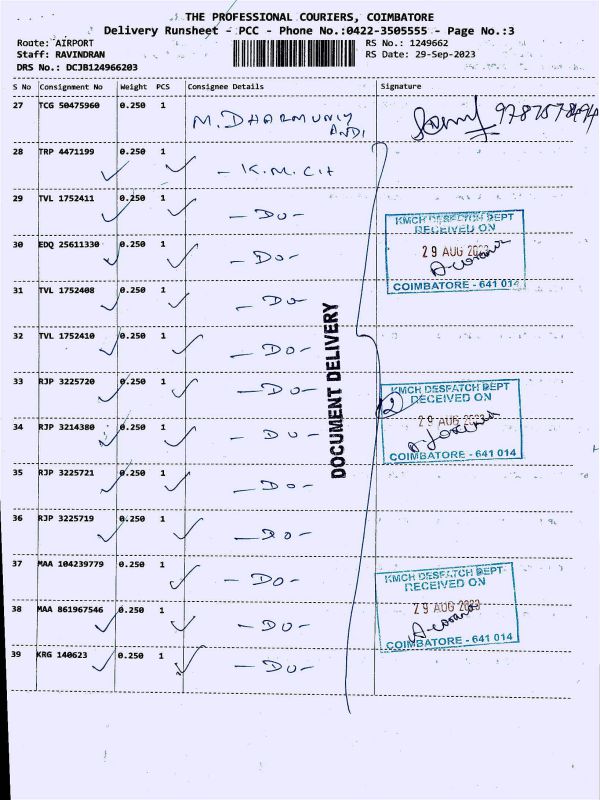 THE PROFESSIONAL COURIERS, COIMBATORE
Delivery Runsheet - PCC - Phone No.:0422-3505555 - Page No.:3
Route: AIRPORT RS No.: 1249662
Staff: RAVINDRAN RS Date: 29-Sep-2023
DRS No.: DCJB124966203
S No Consignment No Weight PCS Consignee Details Signature
27 TCG 50475960 0.250 1 M. DHARMUNIY
ANDI
28 TRP 4471199 0.250 1 - K.M.CH
29 TVL 1752411 0.250 1 - DO -
KMCH DESPATCH DEPT
RECEIVED ON
30 EDQ 25611330 0.250 1 - DO -
29 AUG 2023
COIMBATORE - 641 014
31 TVL 1752408 0.250 1 - DO
32 TVL 1752410 0.250 1 - DO -
DOCUMENT DELIVERY
33 RJP 3225720 0.250 1 - DO -
KMCH DESPATCH DEPT
RECEIVED ON
2
34 RJP 3214380 0.250 1 - DO -
29 AUG 2023
COIMBATORE - 641 014
35 RJP 3225721 0.250 1 - DO -
36 RJP 3225719 0.250 1 - DO -
37 MAA 104239779 0.250 1 - DO -
KMCH DESPATCH DEPT
RECEIVED ON
38 MAA 861967546 0.250 1 - DO -
29 AUG 2023
COIMBATORE - 641 014
39 KRG 140623 0.250 1 - DO -